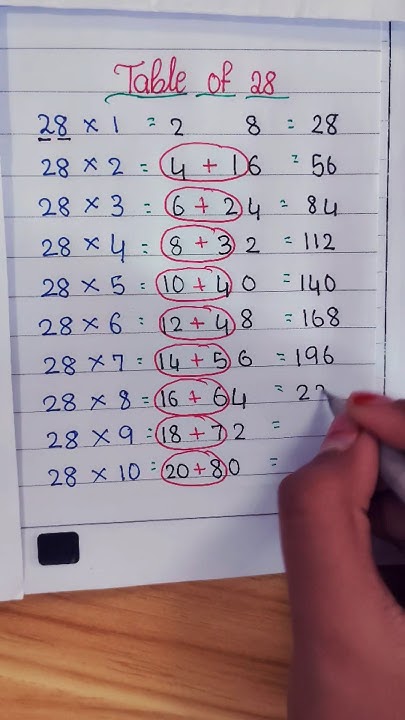 Table of 28
28 × 1 = 2 8 = 28
28 × 2 = 4 + 16 = 56
28 × 3 = 6 + 24 = 84
28 × 4 = 8 + 32 = 112
28 × 5 = 10 + 40 = 140
28 × 6 = 12 + 48 = 168
28 × 7 = 14 + 56 = 196
28 × 8 = 16 + 64 = 22
28 × 9 = 18 + 72 =
28 × 10 = 20 + 80 =